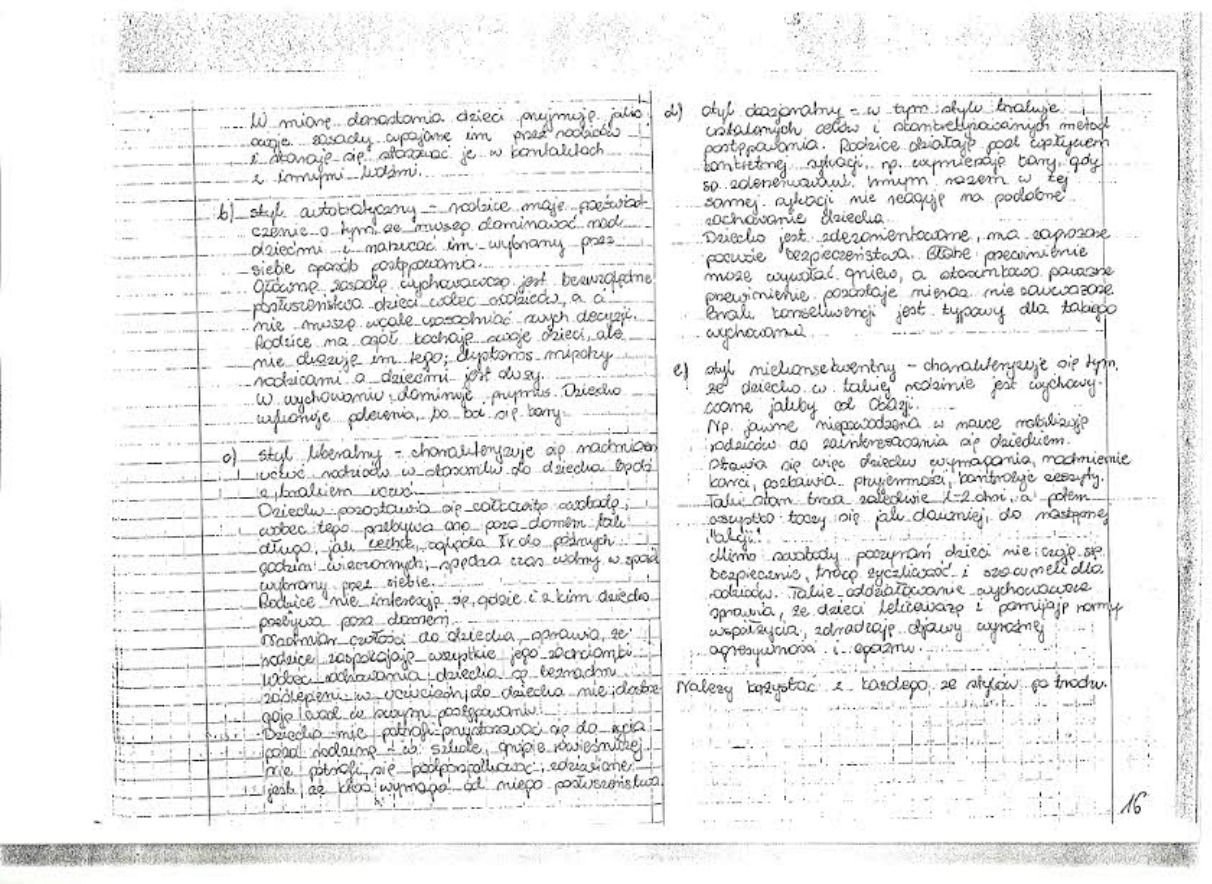 W miarę dorastania dzieci przyjmują jako
swoje zasady wpajane im przez rodziców
i starają się stosować je w kontaktach
z innymi ludźmi.
b) styl autokratyczny - rodzice mają przeświad-
czenie o tym że muszą dominować nad
dziećmi i narzucać im wybrany przez
siebie sposób postępowania.
Główną zasadą wychowawczą jest bezwzględne
posłuszeństwo dzieci wobec rodziców, a
nie muszą wcale uzasadniać swych decyzji.
Rodzice na ogół kochają swoje dzieci, ale
nie okazują im tego; dystans między
rodzicami a dziećmi jest duży.
W wychowaniu dominuje przymus. Dziecko
wykonuje polecenia, bo boi się kary.
c) styl liberalny - charakteryzuje się nadmiarem
uczuć rodziców w stosunku do dziecka bądź
z brakiem uczuć.
Dziecku pozostawia się całkowitą swobodę,
wobec tego przebywa ono poza domem tak
długo, jak zechce, ogląda TV do późnych
godzin wieczornych, spędza czas wolny w sposób
wybrany przez siebie.
Rodzice nie interesują się, gdzie i z kim dziecko
przebywa poza domem.
Nadmiar czułości do dziecka, sprawia, że
rodzice zaspokajają wszystkie jego zachcianki.
Wobec zachowania dziecka są bezradni
zaślepieni w uczuciach do dziecka nie dostrze
gają wad w swoim postępowaniu.
Dziecko nie potrafi przystosować się do życia
poza rodziną - w szkole, grupie rówieśniczej
nie potrafi się podporządkować, zdziwione
jest, że ktoś wymaga od niego posłuszeństwa.
d) styl okazjonalny - w tym stylu brakuje
ustalonych celów i skonkretyzowanych metod
postępowania. Rodzice działają pod wpływem
konkretnej sytuacji, np. wymierzają kary, gdy
są zdenerwowani. Innym razem w tej
samej sytuacji nie reagują na podobne
zachowanie dziecka.
Dziecko jest zdezorientowane, ma zagrożone
poczucie bezpieczeństwa. Błahe przewinienie
może wywołać gniew, a stosunkowo poważne
przewinienie pozostaje nieraz nie zauważone.
Brak konsekwencji jest typowy dla takiego
wychowania.
e) styl niekonsekwentny - charakteryzuje się tym,
że dziecko w takiej rodzinie jest wychowy-
wane jakby od okazji.
Np. jawne niepowodzenia w nauce mobilizują
rodziców do zainteresowania się dzieckiem.
Stawia się więc dziecku wymagania, nadmiernie
karci, pozbawia przyjemności, kontroluje zeszyty.
Taki stan trwa zaledwie 1-2 dni, a potem
wszystko toczy się jak dawniej, do następnej
"akcji".
Mimo swobody poczynań dzieci nie czują się
bezpiecznie, tracą życzliwość i szacunek dla
rodziców. Takie oddziaływanie wychowawcze
sprawia, że dzieci lekceważą i pomijają normy
współżycia, zdradzają objawy wyraźnej
agresywności i egoizmu.
Należy korzystać z każdego ze stylów po trochu.
16